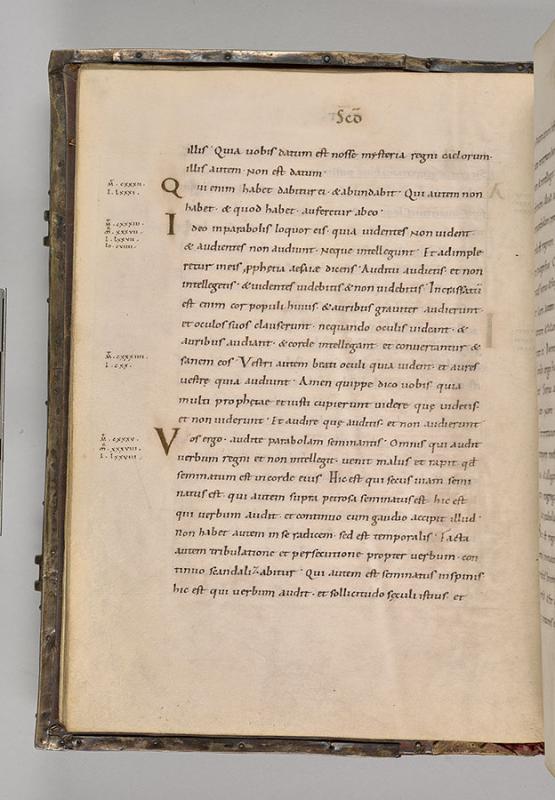 Scd̄
illis · Quia uobis datum est nosse mysteria regni caelorum ·
illis autem · Non est datum ·
Qui enim habet dabitur ei · & abundabit · Qui autem non
habet · & quod habet · auferetur ab eo ·
Ideo in parabolis loquor eis · quia uidentes Non uident ·
& audientes non audiunt · Neque intellegunt · Et adimple
retur in eis pphetia esaiae dicens · Auditu audietis · et non
intellegetis · & uidentes uidebitis & non uidebitis · Incrassatū
est enim cor populi huius · & auribus grauiter audierunt ·
et oculos suos clauserunt · nequando oculis uideant · &
auribus audiant · & corde intellegant · et conuertantur &
sanem eos · Vestri autem beati oculi quia uident · et aures
uestrę quia audiunt · Amen quippe dico uobis quia
multi prophetae et iusti cupierunt uidere quę uidetis ·
et non uiderunt · Et audire quę auditis · et non audierunt
Vos ergo · audite parabolam seminantis · Omnis qui audit
uerbum regni et non intellegit · uenit malus et rapit qd
seminatum est in corde eius · Hic est qui secus uiam semi
natus est · qui autem supra petrosa seminatus est · hic est
qui uerbum audit · et continuo cum gaudio accipit illud ·
Non habet autem in se radicem · sed est temporalis · Facta
autem tribulatione et persecutione propter uerbum · con
tinuo scandalizabitur · Qui autem est seminatus in spinis
hic est qui uerbum audit · et sollicitudo sęculi istius et